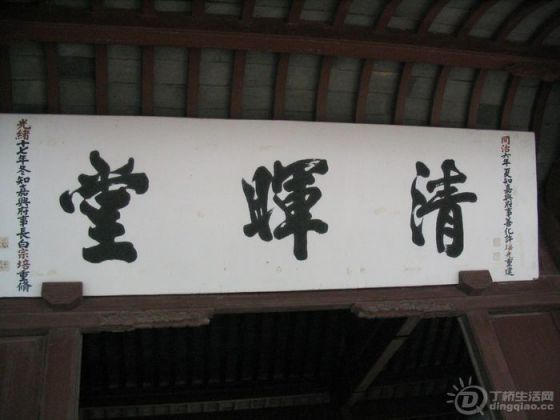 清暉堂
同治六年夏知嘉興府事善化許瑤光重建
光緒十七年冬知嘉興府事長白宗培重脩
丁桥生活网
dingqiao.cc